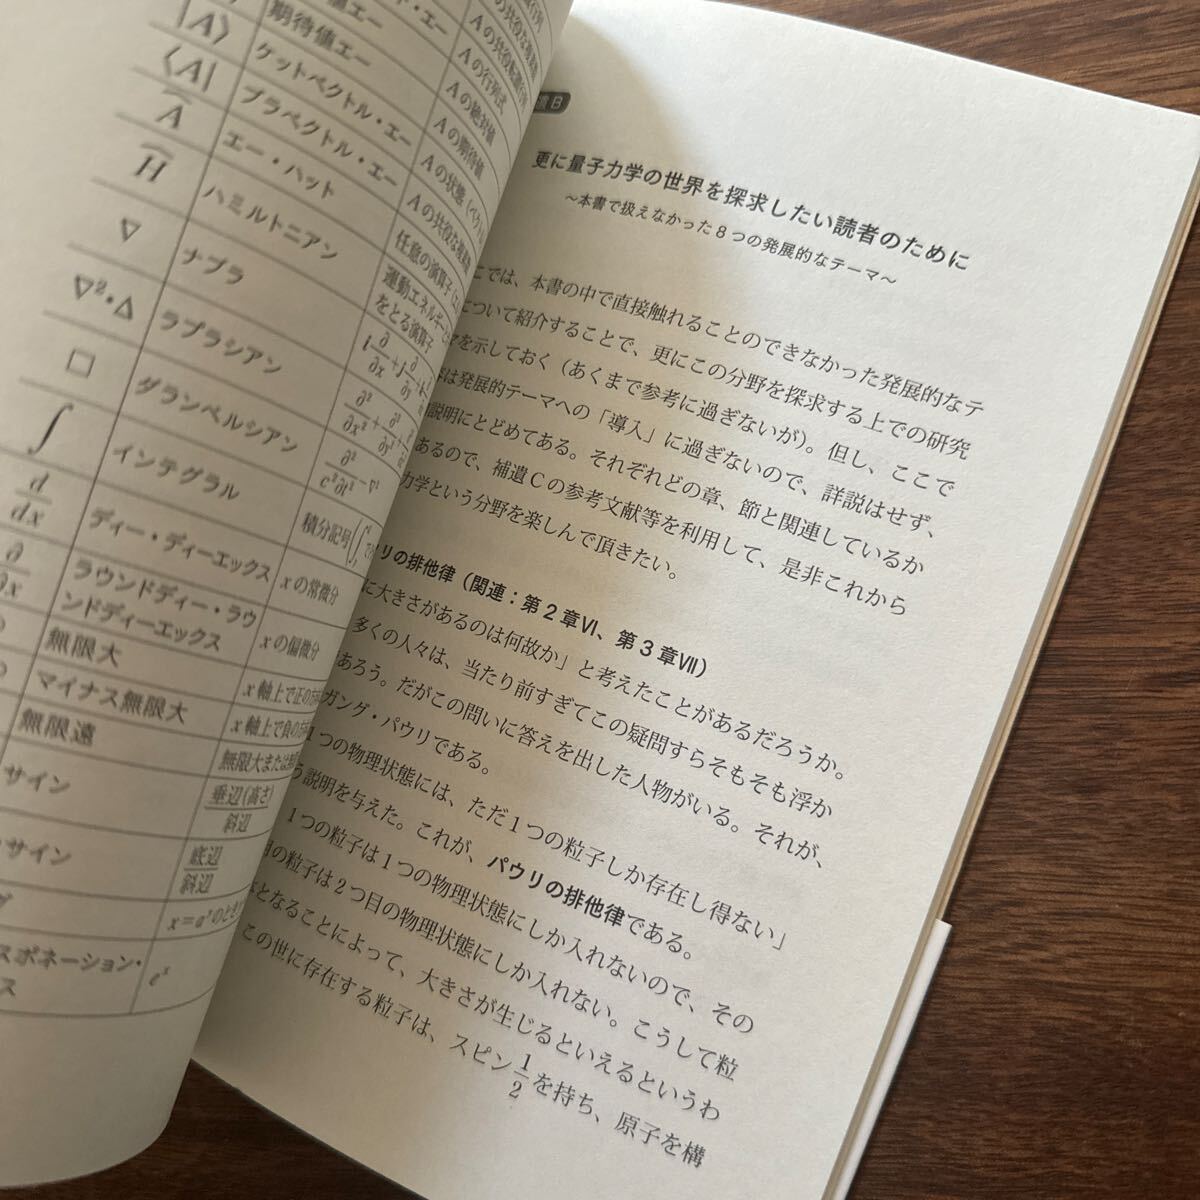 |A⟩ ケットベクトル・エー Aの絶対値
期待値エー Aの行列式
⟨A| ブラベクトル・エー Aの期待値
Â エー・ハット Aの状態
Ĥ ハミルトニアン 任意の演算子
∇ ナブラ 運動エネルギー
をとる演算子
∇²・Δ ラプラシアン
□ ダランベルシアン
∫ インテグラル 積分記号
d/dx ディー・ディーエックス xの常微分
∂/∂x ラウンドディー・ラウ
ンドディーエックス xの偏微分
無限大 x軸上で正の
マイナス無限大 x軸上で負の
無限遠 無限大または
サイン 垂辺(高さ)/斜辺
サイン 底辺/斜辺
x=a
スポネーション・
ス eˣ
遺B
更に量子力学の世界を探求したい読者のために
～本書で扱えなかった8つの発展的なテーマ～
こでは、本書の中で直接触れることのできなかった発展的なテ
について紹介することで、更にこの分野を探求する上での研究
を示しておく（あくまで参考に過ぎないが）。但し、ここで
は発展的テーマへの「導入」に過ぎないので、詳説はせず、
説明にとどめてある。それぞれどの章、節と関連しているか
あるので、補遺Cの参考文献等を利用して、是非これから
力学という分野を楽しんで頂きたい。
リの排他律（関連：第2章Ⅵ、第3章Ⅶ）
に大きさがあるのは何故か」と考えたことがあるだろうか。
多くの人々は、当たり前すぎてこの疑問すらそもそも浮か
あろう。だがこの問いに答えを出した人物がいる。それが、
ガング・パウリである。
1つの物理状態には、ただ1つの粒子しか存在し得ない」
う説明を与えた。これが、パウリの排他律である。
1つの粒子は1つの物理状態にしか入れないので、その
目の粒子は2つ目の物理状態にしか入れない。こうして粒
となることによって、大きさが生じるといえるというわ
この世に存在する粒子は、スピン1/2を持ち、原子を構